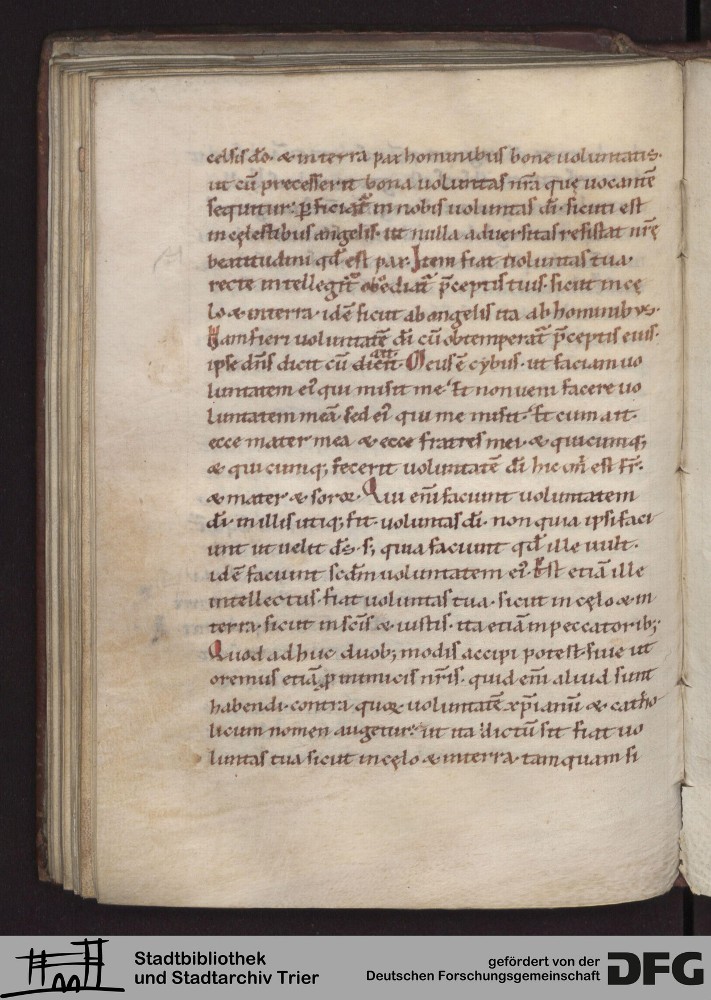 celsis dō· & interra pax hominibus bone uoluntatis·
ut cū precesserit bona uoluntas nr̄a quę uocantē
sequitur· ꝑficiat̄ in nobis uoluntas dī· sicuti est
in cęlestibus angelis· ut nulla aduersitas resistat nr̄ę
beatitudini qđ est pax· Item fiat uoluntas tua·
recte intellegit̄ obediat̄ p̄ceptis tuis· sicut in cę
lo & interra· idē sicut ab angelis ita ab hominibus·
Nam fieri uoluntatē dī cū obtemperat̄ p̄ceptis eius·
ipse dn̄s dicit cū
Meus ē cybus· ut faciam uo
luntatem ei᾽ qui misit me· Et non ueni facere uo
luntatem meā· sed ei᾽ qui me misit· Et cum ait·
ecce mater mea & ecce fratres mei· & quicumq;
& qui cumq; fecerit uoluntatē dī hic est fr̄·
& mater & soror· Qui eni᷈ faciunt uoluntatem
dī· in illis utiq; fit· uoluntas dī· non quia ipsi faci
unt ut uelit d̄s· s; quia faciunt qđ ille uult·
idē faciunt scđm uoluntatem ei᾽· Est etiā ille
intellectus· fiat uoluntas tua· sicut in cęlo & in
terra· sicut in sc̄is & iustis· ita etiā in peccatorib;·
Quod adhuc duob; modis accipi potest· siue ut
oremus etiā ꝓ inimicis nr̄is· quid eni᷈ aliud sunt
habendi· contra quoꝝ uoluntatē xp̄ianū & catho
licum nomen augetur· ut ita dictū sit fiat uo
luntas tua sicut in cęlo & interra· tamquam si
Stadtbibliothek
und Stadtarchiv Trier
gefördert von der
Deutschen Forschungsgemeinschaft
DFG